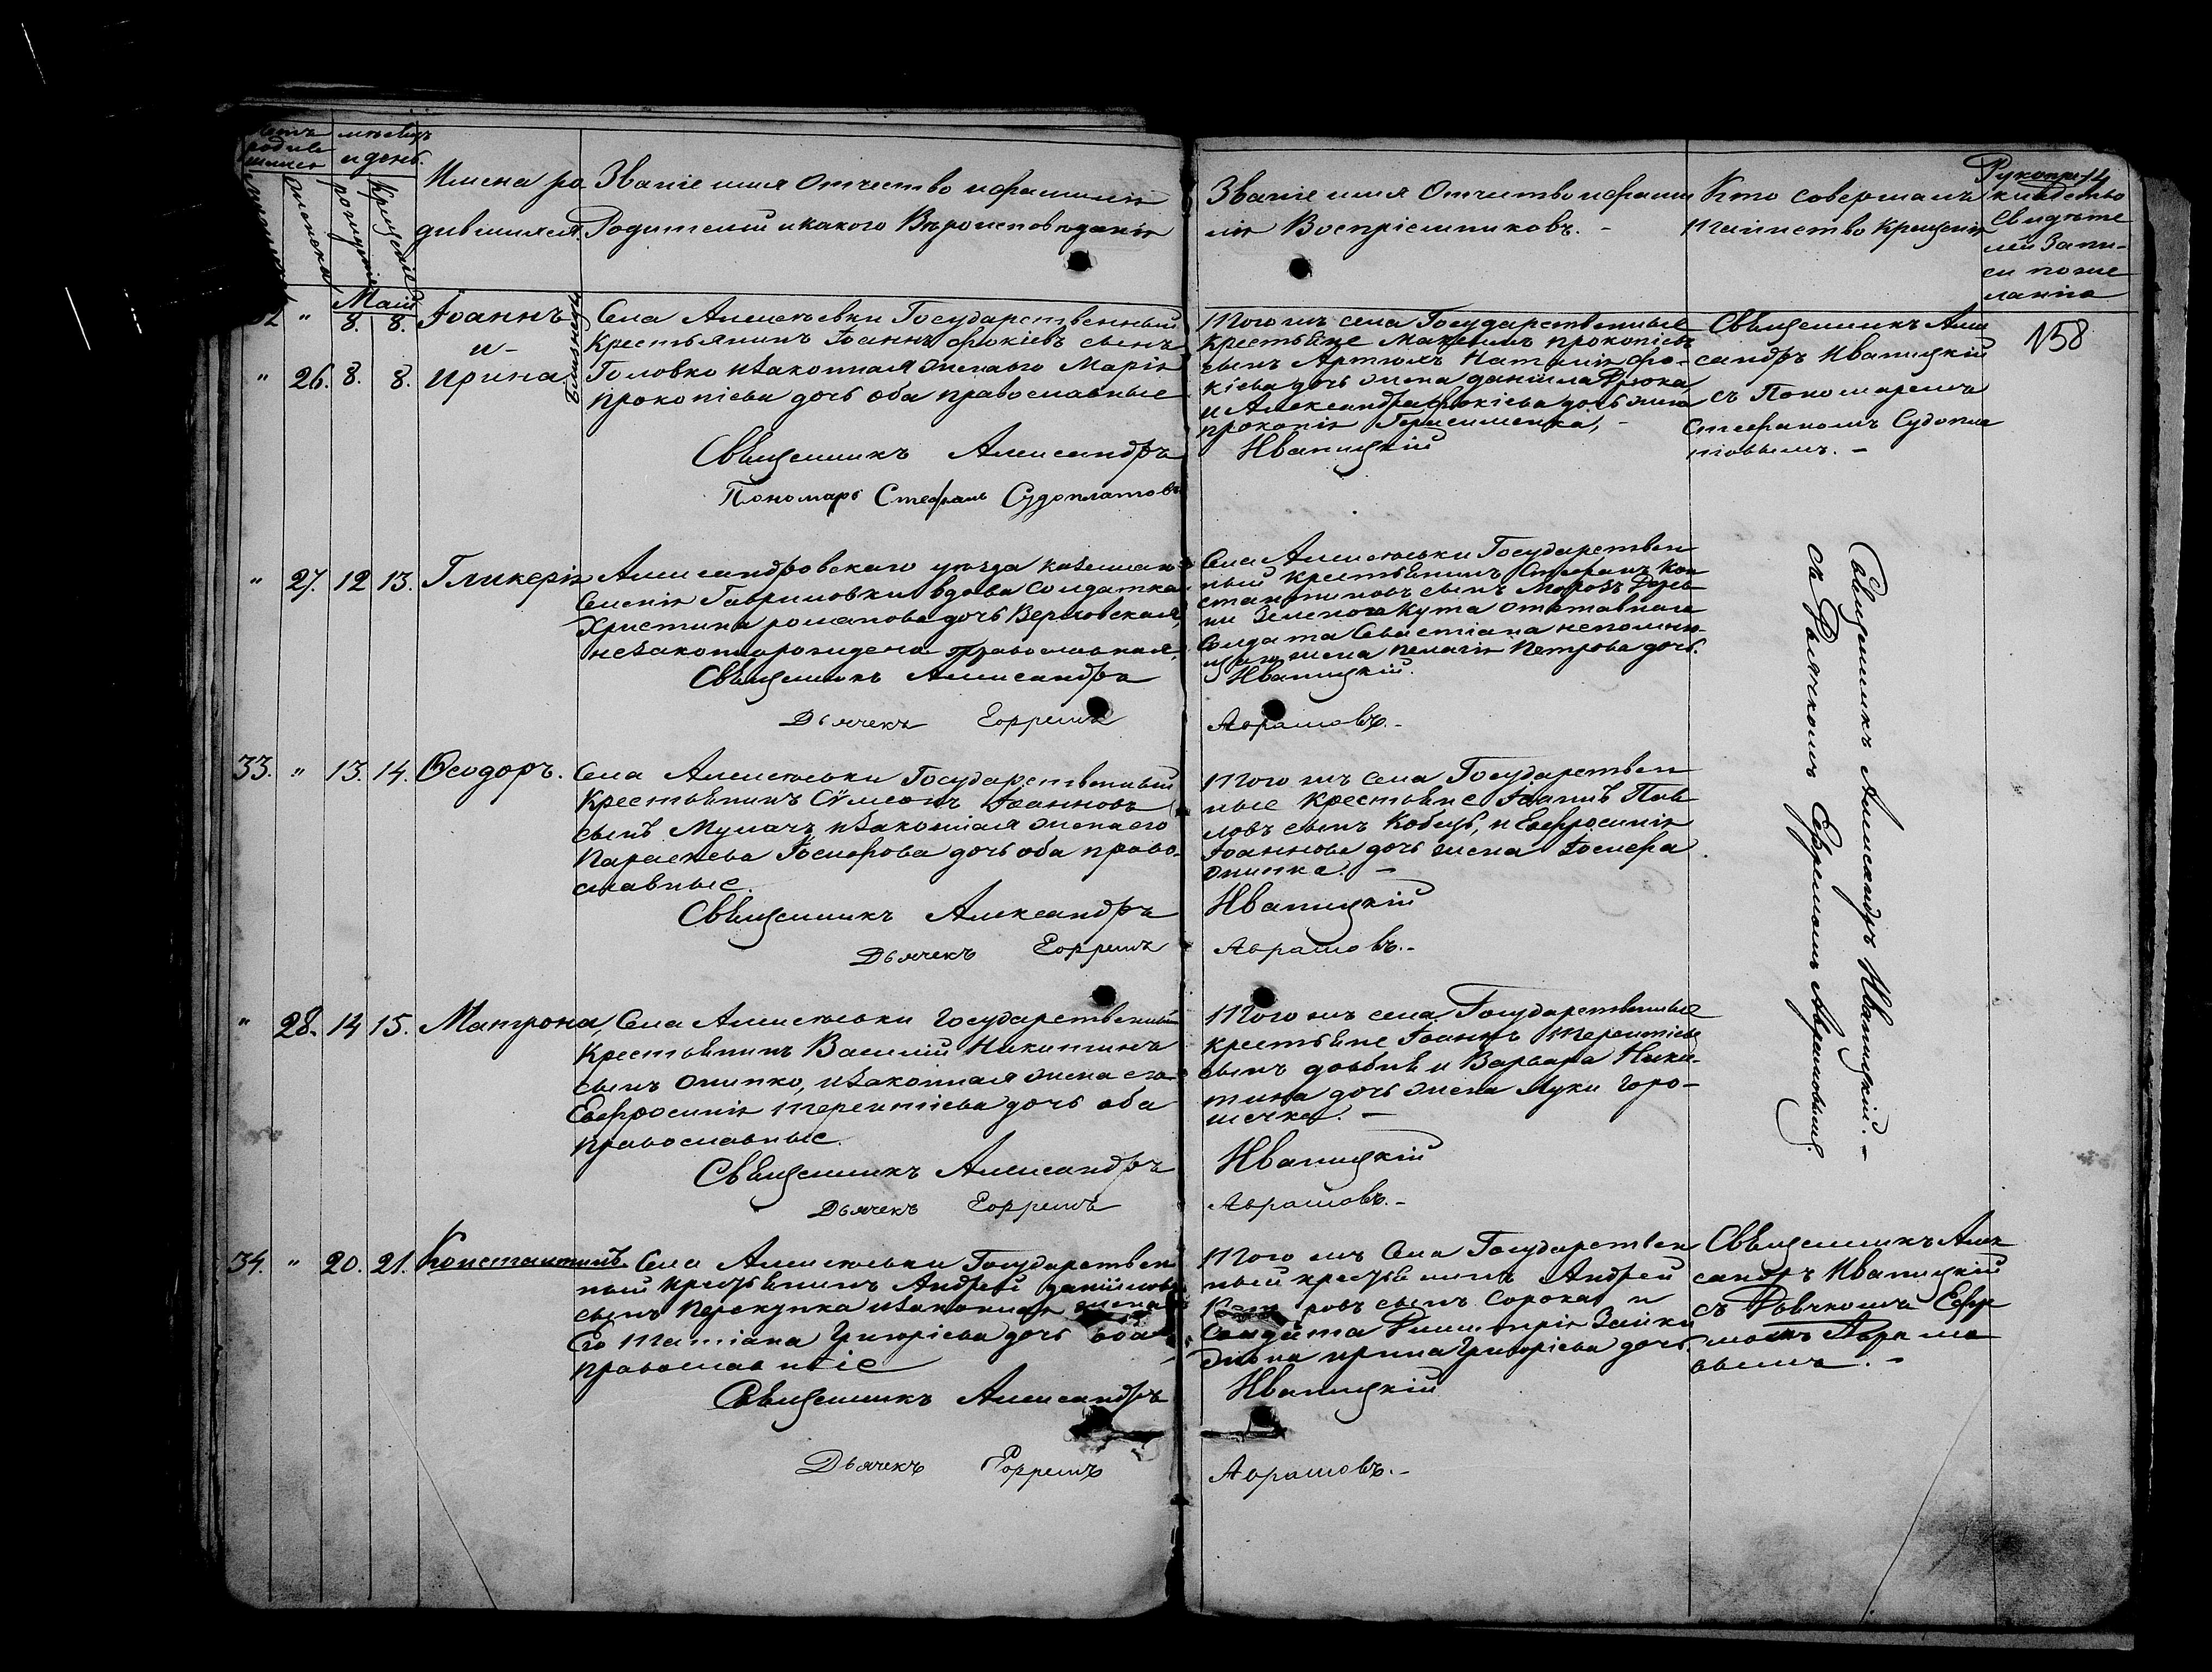 мѣсяцъ
и день.
Имена ро
дившихся.
Званіе имя Отчество и фамилія
Родителей и какого Вѣроисповѣданія
Званіе имя Отчество и фами
лія Воспріемниковъ. -
Кто совершалъ
таинство крещенія
Рукопри
кладство
Свидѣте
лей Запи-
си по же
ланію
158
Маій
" 8. 8. Іоаннъ
и -
" 26. 8. 8. Ирина.
близнецы
Села Алексѣевки Государственный
крестьянинъ Іоаннъ Фокіевъ сынъ
Головко и законная жена его Марія
Прокопіева дочь оба православные
Священникъ Александръ
Пономарь Стефанъ Судоплатовъ
Того жъ села Государственные
крестьяне Максимъ Прокопіевъ
сынъ Артюхъ Наталія Фо-
кіева дочь жена Даніила
и Александра Фокіева дочь жена
Прокопія Герасименка, -
Иваницкій
Священникъ Алек
сандръ Иваницкій
съ Пономаремъ
Стефаномъ Судопла
товымъ. -
" 27. 12 13. Гликерія
Александровскаго уѣзда
Селенія Гавриловки вдова Солдатка
Христина Романова дочь Верховская,
незаконнорождена православная.
Священникъ Александръ
Дьячекъ Ефремъ
Села Алексѣевки Государствен
ный крестьянинъ Стефанъ Кон
стантиновъ сынъ Морозъ Дерев
ни Зеленого Кута отставнаго
Солдата Севастіана
жена Пелагія Петрова дочь.
Иваницкій.
Аврамовъ. -
Священникъ Александръ Иваницкій. -
съ Дьячкомъ Ефремомъ Аврамовымъ.
33. " 13. 14. Ѳеодоръ.
Села Алексѣевки Государственный
Крестьянинъ Сѵмеонъ Іоанновъ
сынъ Мулачъ и законная жена его
Параскева Іосифова дочь оба право-
славные.
Священникъ Александръ
Дьячекъ Ефремъ
Того жъ села Государствен
ные крестьяне Іоаннъ Пав
ловъ сынъ Кобецъ, и Евфросинія
Іоаннова дочь жена Іосифа
Онипка. -
Иваницкій
Аврамовъ. -
" 28. 14 15. Матрона,
Села Алексѣевки Государственный
Крестьянинъ Василій Никитинъ
сынъ Онипко, и законная жена его
Евфросинія Терентіева дочь оба
православные.
Священникъ Александръ
Дьячекъ Ефремъ
Того жъ села Государственные
крестьяне Іоаннъ Терентіевъ
сынъ Довбня и Варвара Ники-
тина дочь жена Луки Горо-
шечка. -
Иваницкій
Аврамовъ. -
34. " 20. 21. Константинъ.
Села Алексѣевки Государствен
ный крестьянинъ Андрей Даніиловъ
сынъ Перекупка и законная жена
Его Татіана Григоріева дочь оба
православніе
Священникъ Александръ
Дьячекъ Ефремъ
Того жъ Села Государствен
ный крестьянинъ Андрей
ровъ сынъ Сорока и
Солдата Димитрія Зайки
жена Ирина Григоріева дочь.
Иваницкій
Аврамовъ. -
Священникъ Алек
сандръ Иваницкій
съ Дьячкомъ Ефре
момъ Аврамо
вымъ. -